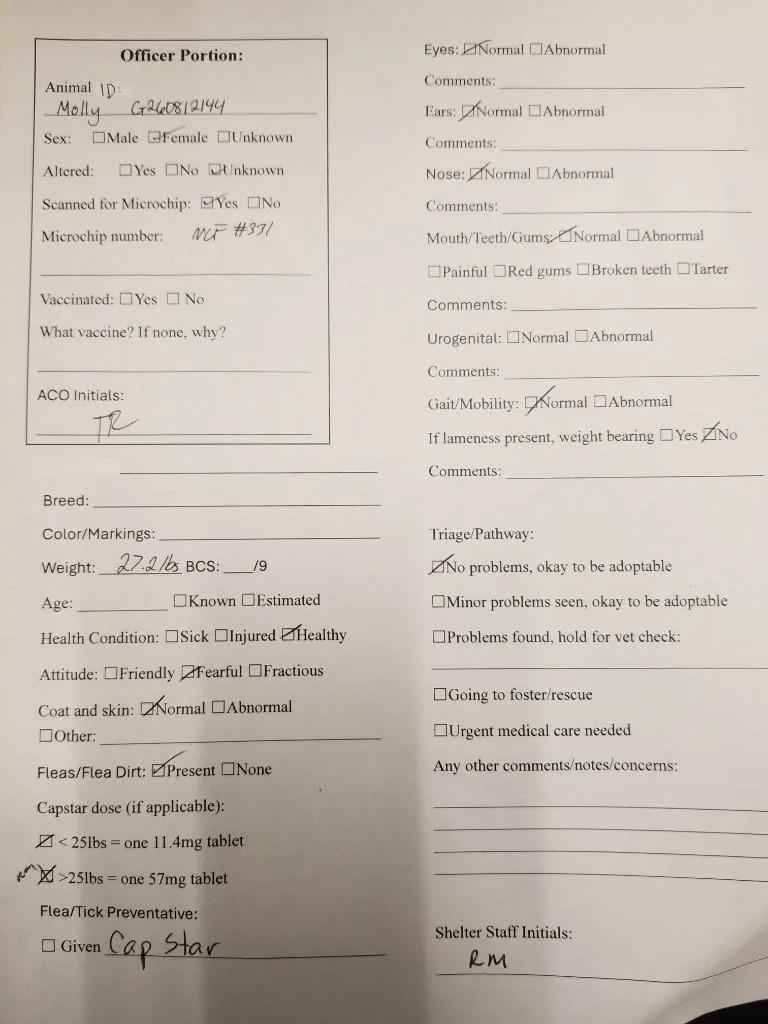 Officer Portion:
Animal ID:
Molly G260812144
Sex: ☐Male ☑Female ☐Unknown
Altered: ☐Yes ☐No ☑Unknown
Scanned for Microchip: ☑Yes ☐No
Microchip number: NCF #331
Vaccinated: ☐Yes ☐ No
What vaccine? If none, why?
ACO Initials:
TR
Breed:
Color/Markings:
Weight: 27.2 lbs BCS: ___/9
Age: ☐Known ☐Estimated
Health Condition: ☐Sick ☐Injured ☑Healthy
Attitude: ☐Friendly ☑Fearful ☐Fractious
Coat and skin: ☑Normal ☐Abnormal
☐Other:
Fleas/Flea Dirt: ☑Present ☐None
Capstar dose (if applicable):
☑ < 25lbs = one 11.4mg tablet
☒ >25lbs = one 57mg tablet
Flea/Tick Preventative:
☐ Given Cap Star
Eyes: ☑Normal ☐Abnormal
Comments:
Ears: ☑Normal ☐Abnormal
Comments:
Nose: ☑Normal ☐Abnormal
Comments:
Mouth/Teeth/Gums: ☑Normal ☐Abnormal
☐Painful ☐Red gums ☐Broken teeth ☐Tarter
Comments:
Urogenital: ☐Normal ☐Abnormal
Comments:
Gait/Mobility: ☑Normal ☐Abnormal
If lameness present, weight bearing ☐Yes ☑No
Comments:
Triage/Pathway:
☑No problems, okay to be adoptable
☐Minor problems seen, okay to be adoptable
☐Problems found, hold for vet check:
☐Going to foster/rescue
☐Urgent medical care needed
Any other comments/notes/concerns:
Shelter Staff Initials:
RM